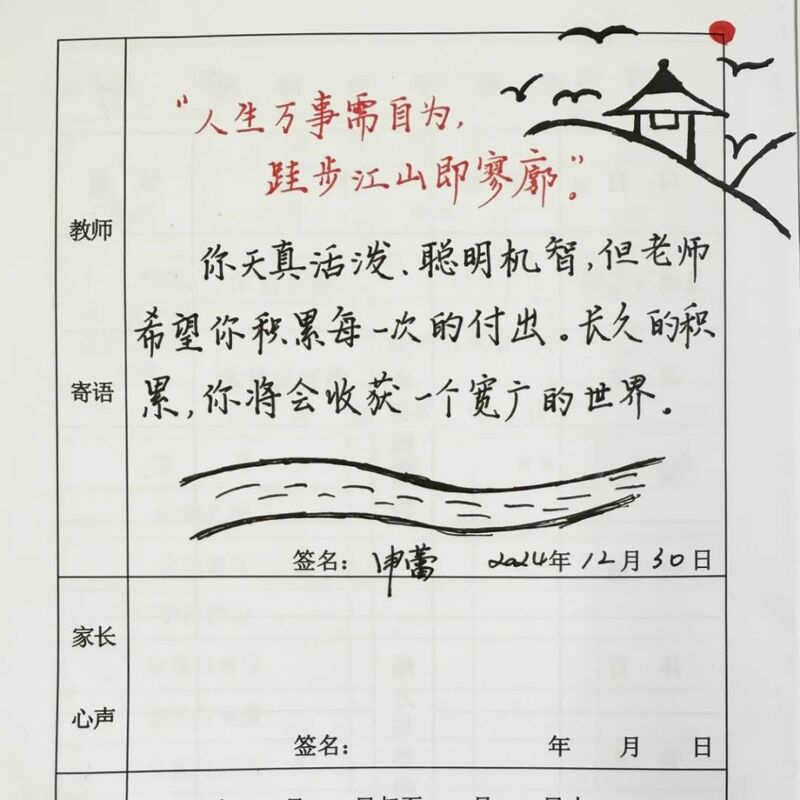 “人生万事需自为，
跬步江山即寥廓”。
教师
寄语
你天真活泼、聪明机智，但老师
希望你积累每一次的付出。长久的积
累，你将会收获一个宽广的世界。
签名：申蕾 2024年12月30日
家长
心声
签名： 年 月 日